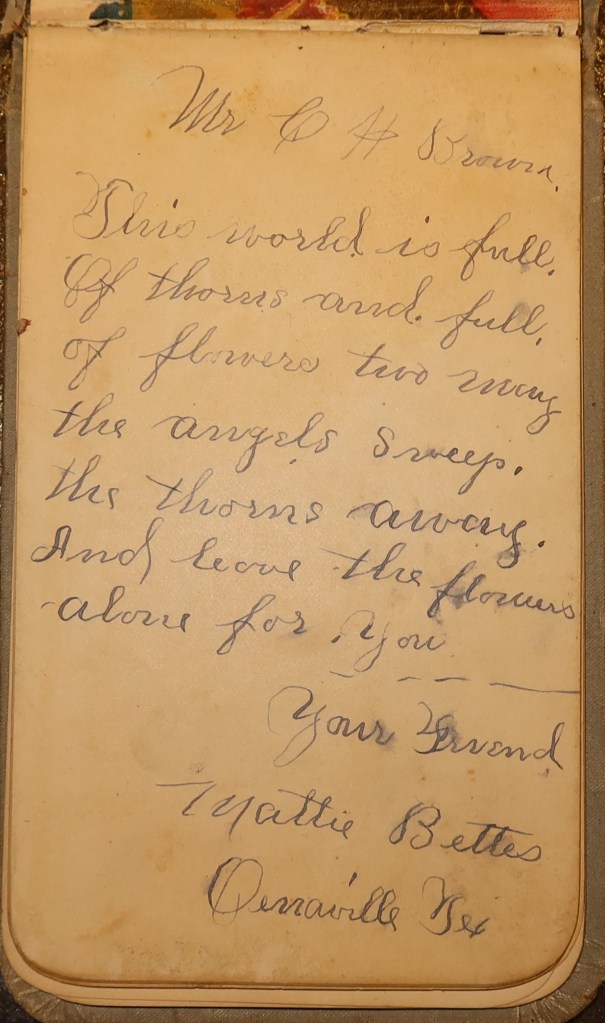 Mr C H Brown.
This world is full.
Of thorns and. full.
of flowers two may
the angels sweep.
the thorns away.
And leave the flowers
alone for you
Your Friend
Mattie Bettes
Oenaville Tex